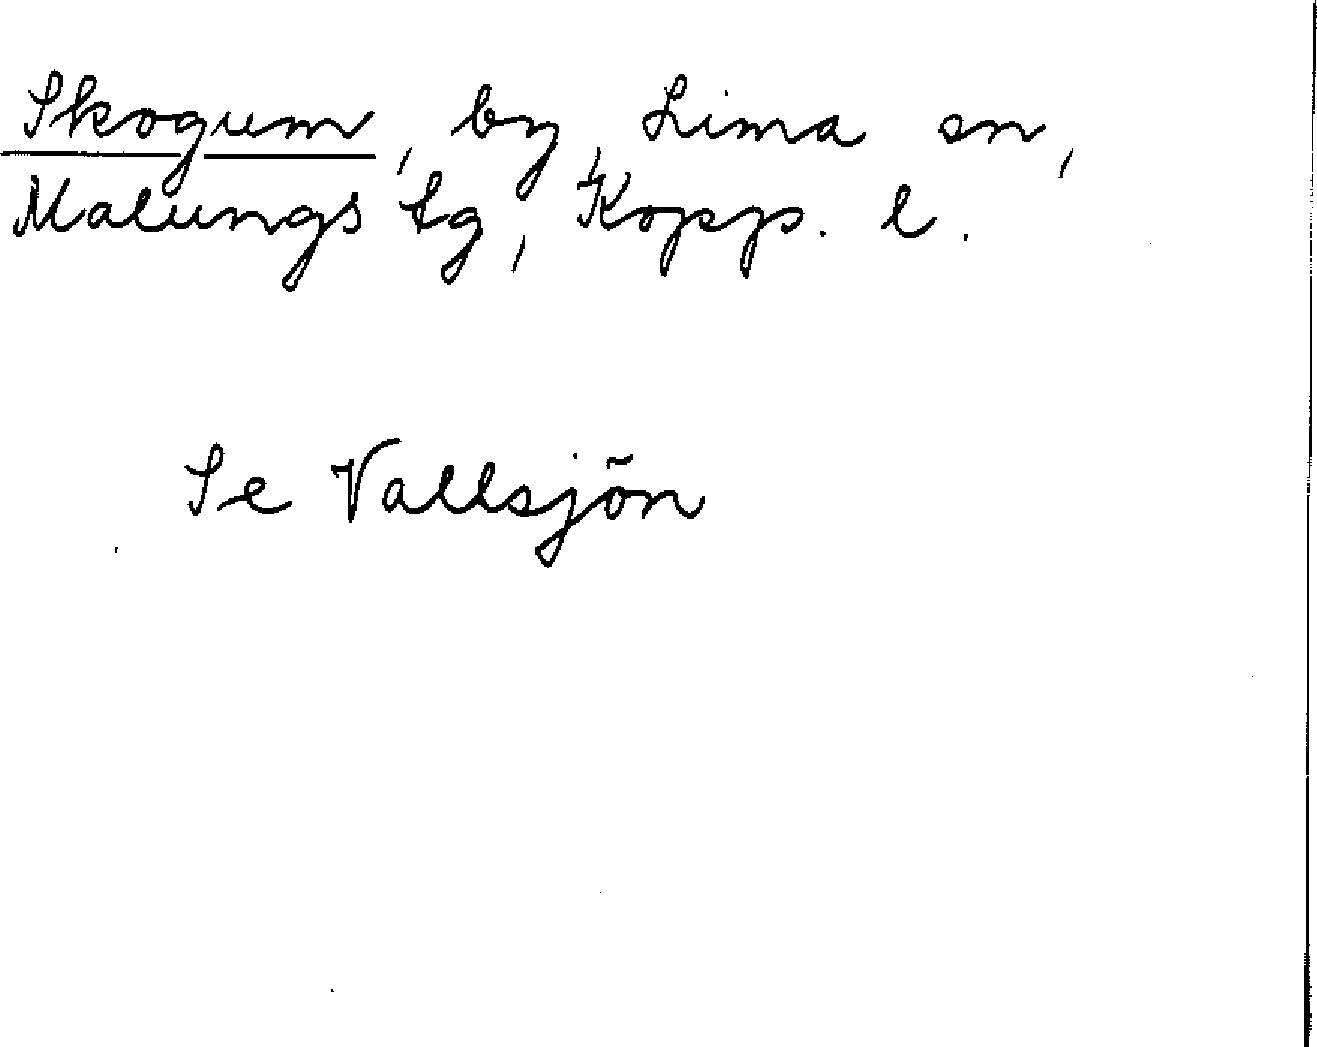 Skogum, by, Lima sn,
Malungs tg, Kopp. l.
Se Vallsjön